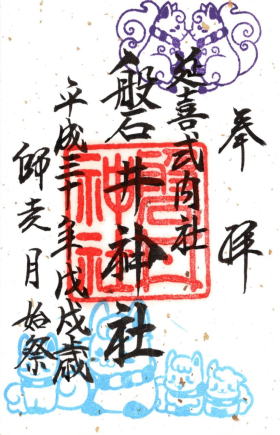 奉拝
延喜式内社
磐井神社
平成三十年戊戌歳
師走月始祭
磐井
神社